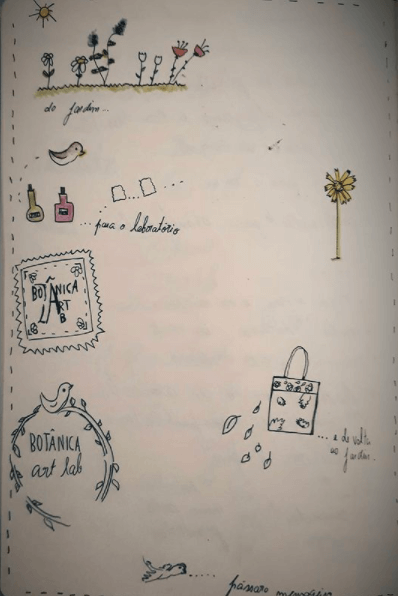 do jardim...
... para o laboratório
BOTÂNICA
ART
B
BOTÂNICA
art lab
... e de volta
ao jardim.
..... pássaro